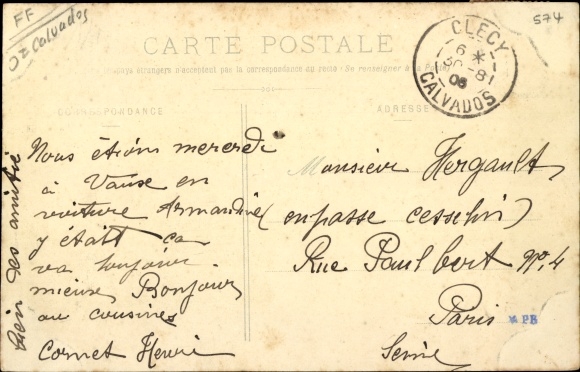 FF
Calvados
574
CARTE POSTALE
pays étrangers n'acceptent pas la correspondance au recto (Se renseigner à la Poste)
CLECY
6 *
30 -8
06
CALVADOS
CORRESPONDANCE
ADRESSE
Nous étions mercredi
à en
voiture Armandine
y était ça
va toujours
mieux Bonjour
au cousines
Cornet Henri
bien des amitié
Monsieur Hergault
(
Rue Paul bert No 4
Paris
Seine
* PB